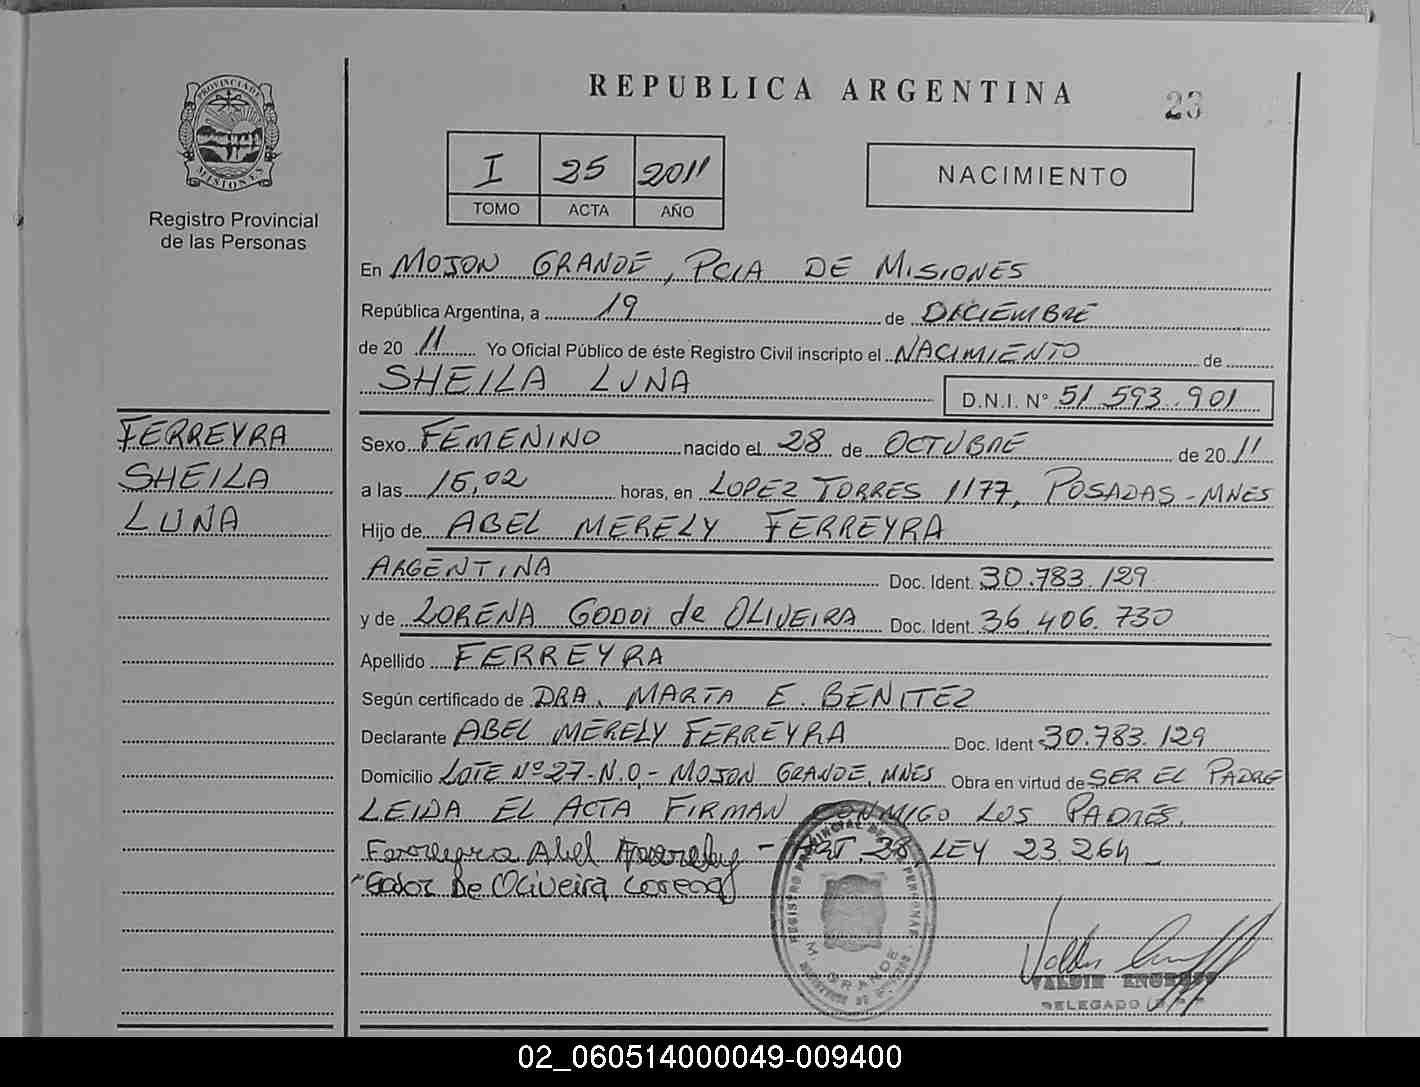 PROVINCIA DE
MISIONES
Registro Provincial
de las Personas
FERREYRA
SHEILA
LUNA
REPUBLICA ARGENTINA
23
I 25 2011
TOMO ACTA AÑO
NACIMIENTO
En MOJON GRANDE, PCIA DE MISIONES
República Argentina, a 19 de DICIEMBRE
de 20 11 Yo Oficial Público de éste Registro Civil inscripto el NACIMIENTO de
SHEILA LUNA D.N.I. N° 51.593.901
Sexo FEMENINO nacido el 28 de OCTUBRE de 20 11
a las 16,02 horas, en LOPEZ TORRES 1177, POSADAS-MNES
Hijo de ABEL MERELY FERREYRA
ARGENTINA Doc. Ident. 30.783.129
y de LORENA GODOI de OLIVEIRA Doc. Ident. 36.406.730
Apellido FERREYRA
Según certificado de DRA. MARTA E. BENITEZ
Declarante ABEL MERELY FERREYRA Doc. Ident 30.783.129
Domicilio LOTE Nº 27-N.O,- MOJON GRANDE, MNES Obra en virtud de SER EL PADRE
LEIDA EL ACTA FIRMAN CONMIGO LOS PADRES.
Ferreyra Abel Merely - ART. 28 LEY 23.264 -
Godoi De Oliveira Lorena
REGISTRO PROVINCIAL DE LAS PERSONAS
M. GRANDE
VALDIR
DELEGADO
02_060514000049-009400